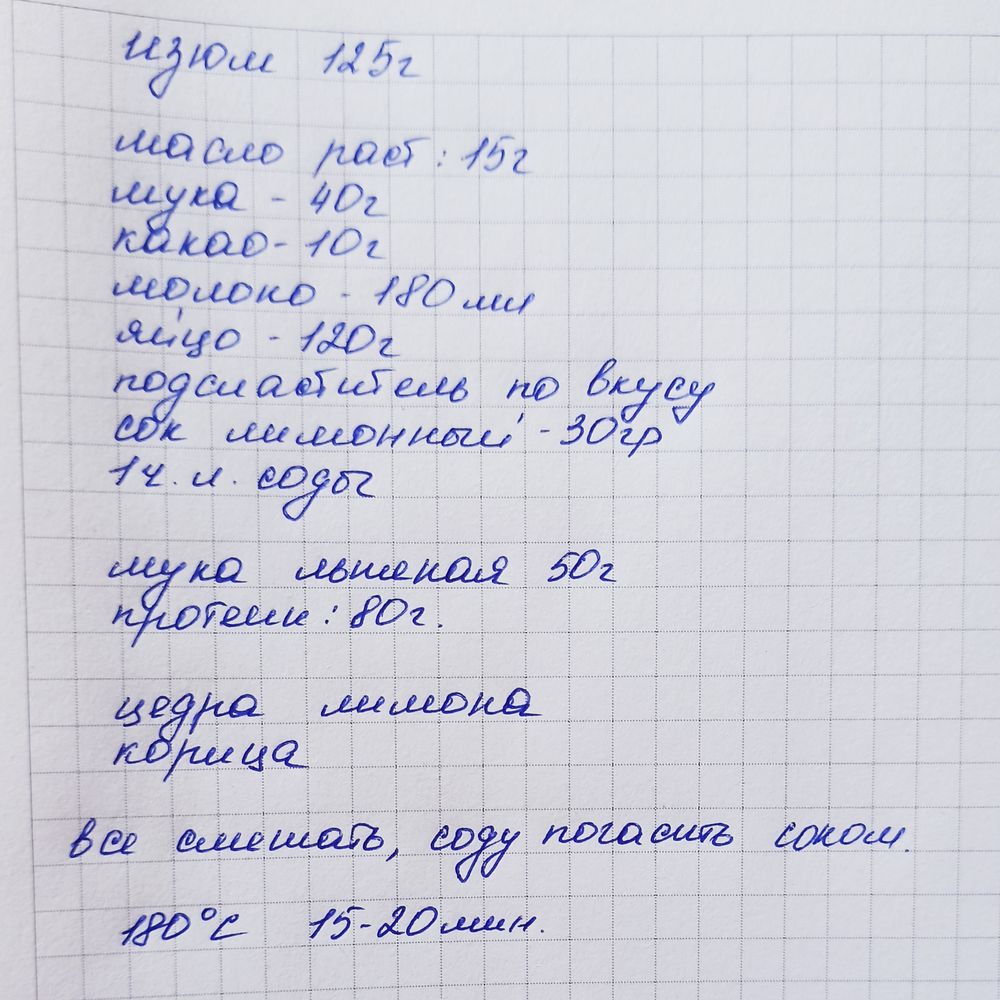 изюм 125г
масло раст: 15г
мука - 40г
какао - 10г
молоко - 180мл
яйцо - 120г
подсластитель по вкусу
сок лимонный - 30гр
1ч. л. соды
мука льняная 50г
протеин: 80г.
цедра лимона
корица
все смешать, соду погасить соком.
180°C 15-20мин.